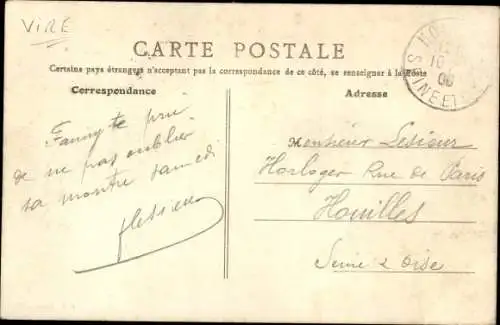 VIRE
CARTE POSTALE
Certains pays étrangers n'acceptant pas la correspondance de ce côté, se renseigner à la Poste
Correspondance
Adresse
Fanny te prie
de ne pas oublier
sa montre samedi
Monsieur Lesieur
Horloger Rue de Paris
Houilles
Seine & Oise